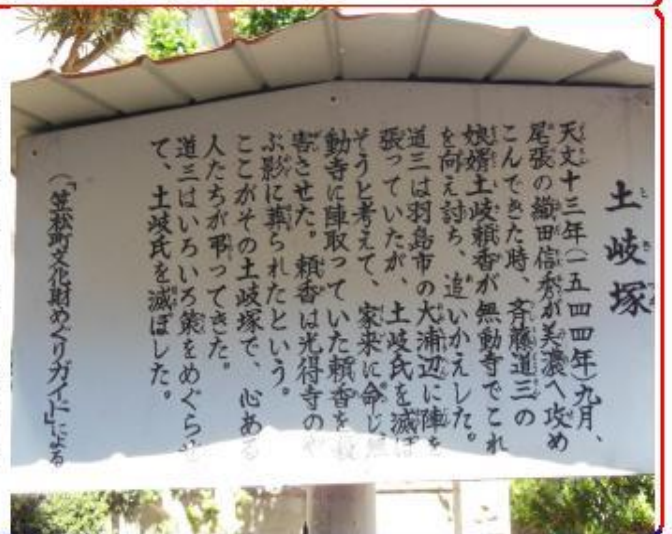 土岐塚
天文十三年(一五四四年)九月、
尾張の織田信秀が美濃へ攻め
こんできた時、斉藤道三の
娘婿土岐頼香が無動寺でこれ
を向え討ち、追いかえした。
道三は羽島市の大浦辺に陣を
張っていたが、土岐氏を滅ぼ
そうと考えて、家来に命じ無
動寺に陣取っていた頼香を殺
害させた。頼香は光得寺のや
ぶ影に葬られたという。
ここがその土岐塚で、心ある
人たちが弔ってきた。
道三はいろいろ策をめぐらせ
て、土岐氏を滅ぼした。
(「笠松町文化財めぐりガイド」による